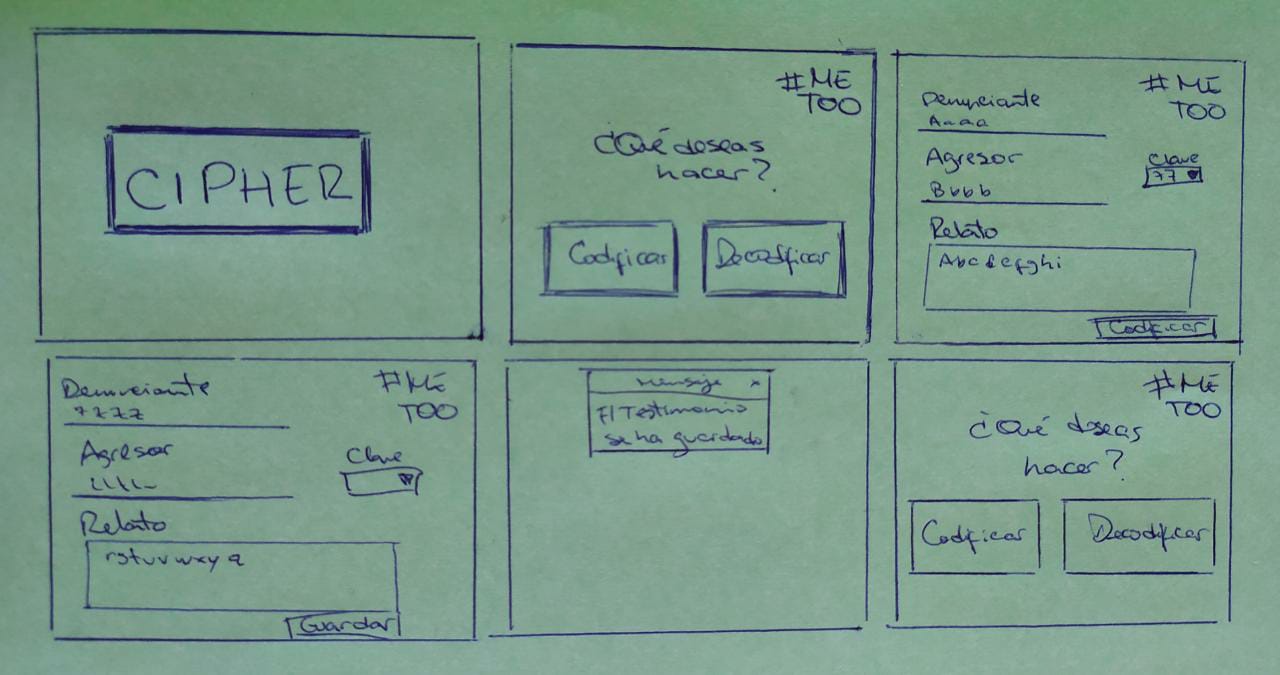 CIPHER
#ME
TOO
¿Qué deseas
hacer?
Codificar
Decodificar
#ME
TOO
Denunciante
Aaaa
Agresor
Clave
Bbbb
77
Relato
Abcdefghi
Codificar
Denunciante
#ME
TOO
Agresor
Clave
Relato
rstuvwxya
Guardar
Mensaje x
El Testimonio
se ha guardado
#ME
TOO
¿Qué deseas
hacer?
Codificar
Decodificar